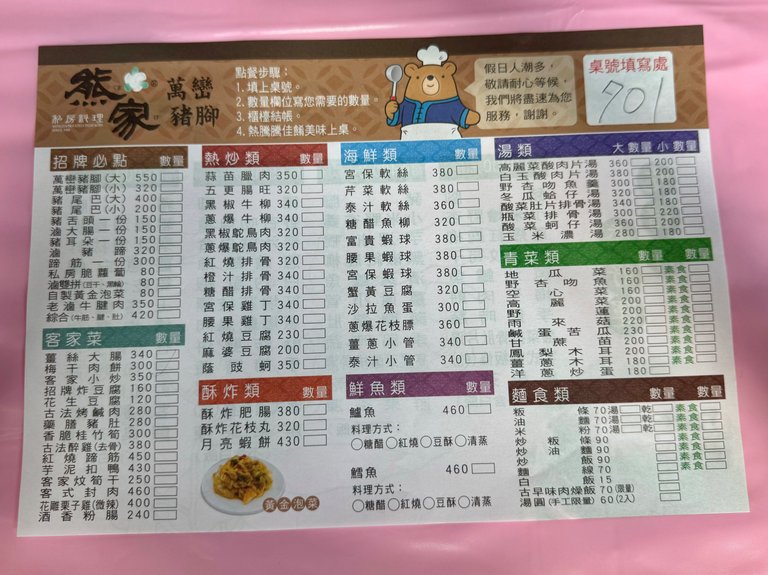 熊家
私房料理
萬巒
豬腳
點餐步驟：
1.填上桌號。
2.數量欄位寫您需要的數量。
3.櫃檯結帳。
4.熱騰騰佳餚美味上桌。
假日人潮多，
敬請耐心等候，
我們將盡速為您
服務，謝謝。
桌號填寫處
701
招牌必點 數量
萬巒豬腳(大) 550
萬巒豬腳(小) 320
豬尾巴(大) 400
豬尾巴(小) 200
豬舌頭一份 150
滷大腸一份 190
豬耳朵一份 150
滷豬蹄 320
蹄筋一份 300
私房脆蘿蔔 80
滷雙拼(豆干、黑輪) 80
自製黃金泡菜 80
老滷牛腱肉 350
綜合(牛筋、腱、肚) 420
客家菜 數量
薑絲大腸 340
梅干肉餅 300
客家小炒 350
招牌炸豆腐 160
花生豆腐 120
古法烤鹹肉 280
藥膳豬肚 280
香脆桂竹筍 300
古法醉雞(去骨) 380
紅燒蹄筋 450
芋泥扣鴨 430
客家炆筍干 250
客式封肉 460
花雕栗子雞(微辣) 400
酒香粉腸 240
熱炒類 數量
蒜苗臘肉 350
五更腸旺 320
黑椒牛柳 340
蔥爆牛柳 340
黑椒鴕鳥肉 320
蔥爆鴕鳥肉 320
紅燒排骨 340
橙汁排骨 340
糖醋排骨 340
宮保雞丁 340
腰果雞丁 340
紅燒豆腐 230
麻婆豆腐 200
蔭豉蚵 350
酥炸類 數量
酥炸肥腸 380
酥炸花枝丸 320
月亮蝦餅 430
黃金泡菜
海鮮類 數量
宮保軟絲 380
芹菜軟絲 380
泰汁軟絲 360
糖醋魚柳 320
富貴蝦球 380
腰果蝦球 380
宮保蝦球 380
蟹黃豆腐 320
沙拉魚蛋 300
蔥爆花枝膘 360
薑蔥小管 340
泰汁小管 340
鮮魚類 數量
鱸魚 460
料理方式：
○糖醋○紅燒○豆酥○清蒸
鱈魚 460
料理方式：
○糖醋○紅燒○豆酥○清蒸
湯類 大 數量 小 數量
高麗菜酸肉片湯 360 200
白玉酸肉片湯 360 200
野杏吻魚羹 300 180
冬瓜蛤仔湯 320 180
酸菜肚片排骨湯 340 200
瓶菜排骨湯 300 220
酸菜蚵仔湯 280 180
玉米濃湯 280 180
青菜類 數量
地瓜菜 160 素食
野杏吻魚 180
空心菜 160 素食
高麗菜 160 素食
野蓮 200 素食
雨來菇 220 素食
鹹蛋苦瓜 230 素食
甘蔗苗 180 素食
鳳梨木耳 200 素食
薑蔥木耳 180 素食
洋蔥炒蛋 180
麵食類 數量 數量
粄條 70 湯 乾 素食
油麵 70 湯 乾 素食
米粉 70 湯 乾 素食
炒粄條 90 素食
炒油麵 90 素食
炒飯 90 素食
麵線 70 素食
白飯 15
古早味肉燥飯 70 (限量)
湯圓(手工限量) 60 (2入)